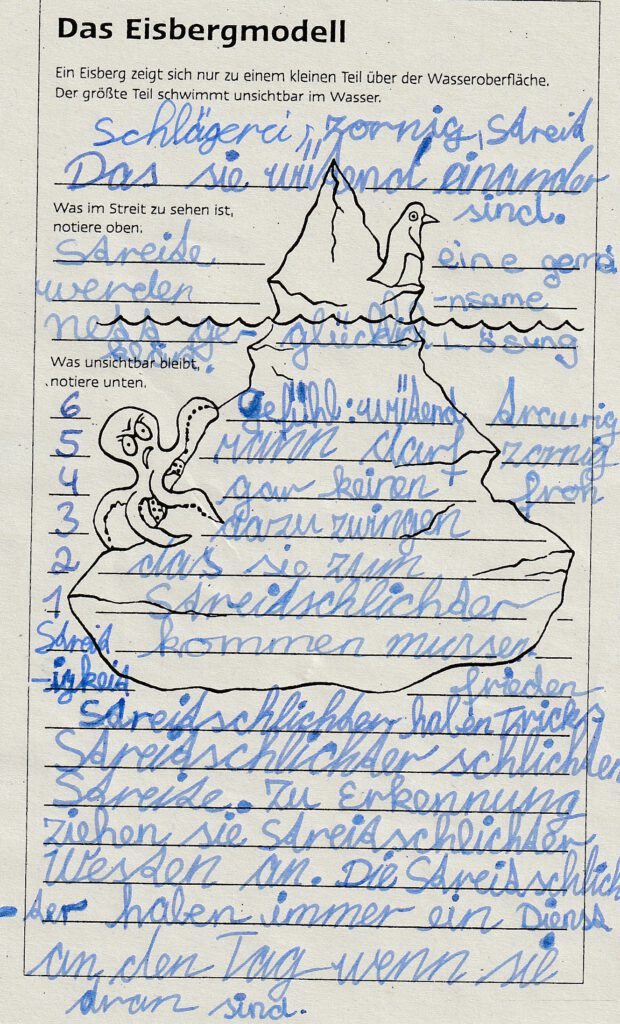 Das Eisbergmodell
Ein Eisberg zeigt sich nur zu einem kleinen Teil über der Wasseroberfläche.
Der größte Teil schwimmt unsichtbar im Wasser.
Schlägerei, zornig, Streid
Das sie wütend einander
sind.
Was im Streit zu sehen ist,
notiere oben.
Streite
werden
ge-
eine gemei
-nsame
glückliche Lösung
Was unsichtbar bleibt,
notiere unten.
6 Gefühl: wütend traurig
5 mann darf zornig
4 gar keinen froh
3 dazu zwingen
2 das sie zum
1 Streidschlichter
Streid
-igkeid
kommen mussen
frieden
Streidschlichter haben Tricks
Streidschlichter schlichten
Streite. Zu Erkennung
ziehen sie Streidschlichter
Westen an. Die Streidschlich
-ter haben immer ein Dienst
an den Tag wenn sie
dran sind.